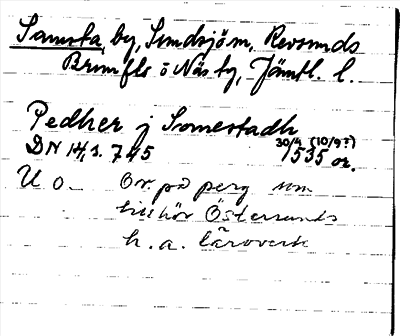 Samsta, by, Sundsjö sn, Revsunds
Brunflo o Näs tg, Jämtl. l.
Pedher j Somestadh
DN 14, s. 745 30/4 (10/9?) 1535 or.
U O. Or. på perg som
tillhör Östersunds
h. a. läroverk